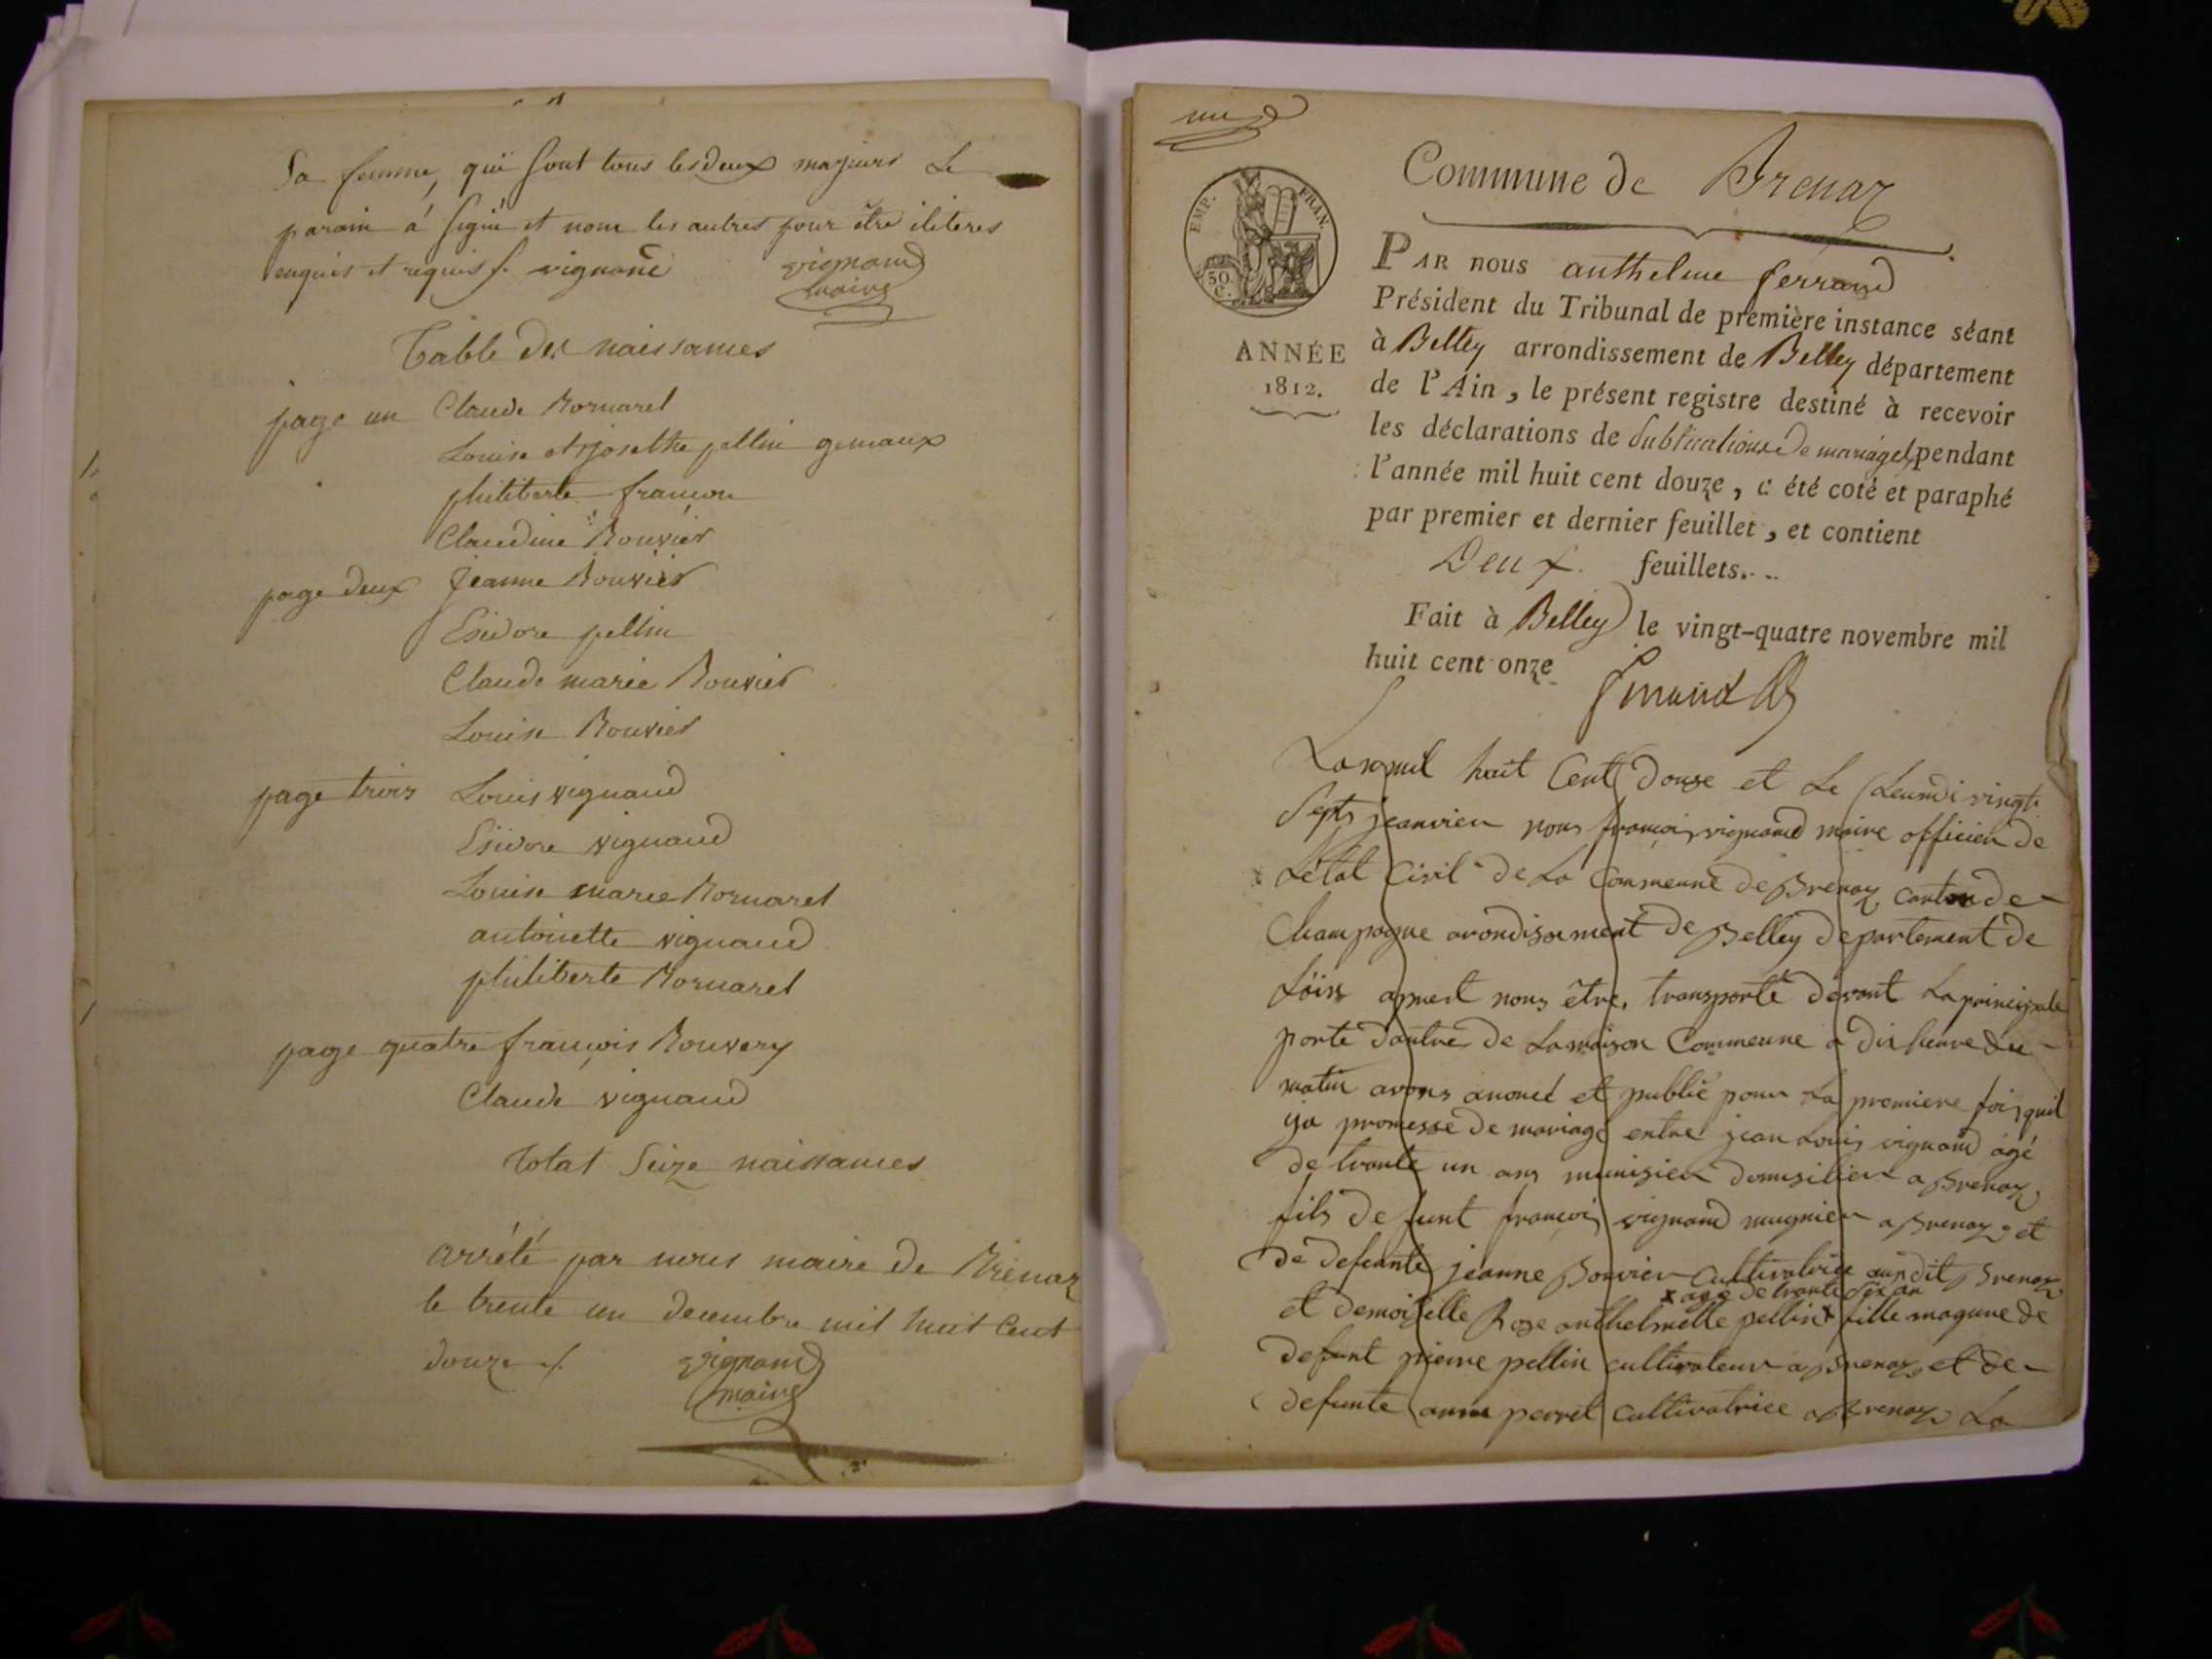 Sa femme, qui sont tous les deux majeurs Le
parain á signé et nom les autres pour être iliteres
enquis et requis /. vignand vignand
maire
Table des naissances
page un Claude Bornarel
Louise et josethe pellin gemaux
philiberte françon
Claudine Bouvier
page deux Jeanne Bouvier
Esidore pellin
Claude marie Bouvier
Louise Bouvier
page trois Louis vignaud
Esidore vignaud
Louise marie Bornarel
antoinette vignaud
philiberte Bornarel
page quatre françois Bouvery
Claude vignaud
total Seize naissances
arrété par nous maire de Brénaz
le trente un decembre mil huit Cent
douze /. vignand
maire
Commune de Brenaz
EMP. FRAN.
50
C.
ANNÉE
1812.
PAR nous anthelme ferrand
Président du Tribunal de première instance séant
à Belley arrondissement de Belley département
de l'Ain, le présent registre destiné à recevoir
les déclarations de Publications De mariages pendant
l'année mil huit cent douze, a été coté et paraphé
par premier et dernier feuillet, et contient
Deux feuillets.
Fait à Belley le vingt-quatre novembre mil
huit cent onze
Lan mil huit Cent Douze et Le Leundi vingt
Septs jeanvier nous françois vignand maire officier de
Létat Civil de La Commeune de Brenaz canton de
Champagne arondissement de Belley departement de
Löin apprest nous être transporté devant La principale
porte dantré de La maison Commeune a dix heure du
matin avons anoncé et publié pour La premiere fois quil
ya promesse de mariage entre jean Louis vignand agé
de trante un ans munisier domisilier a Brenaz
fils de funt françois vignand mugnier a Brenaz et
de defeunte jeanne Bouvier Cultivatrice au dit Brenaz
x age de trante six an
et demoiselle Rose anthelmette pellin x fille magure de
defunt pierre pellin cultivateur a Brenaz et de
defunte anne perret cultivatrice a Brenaz La